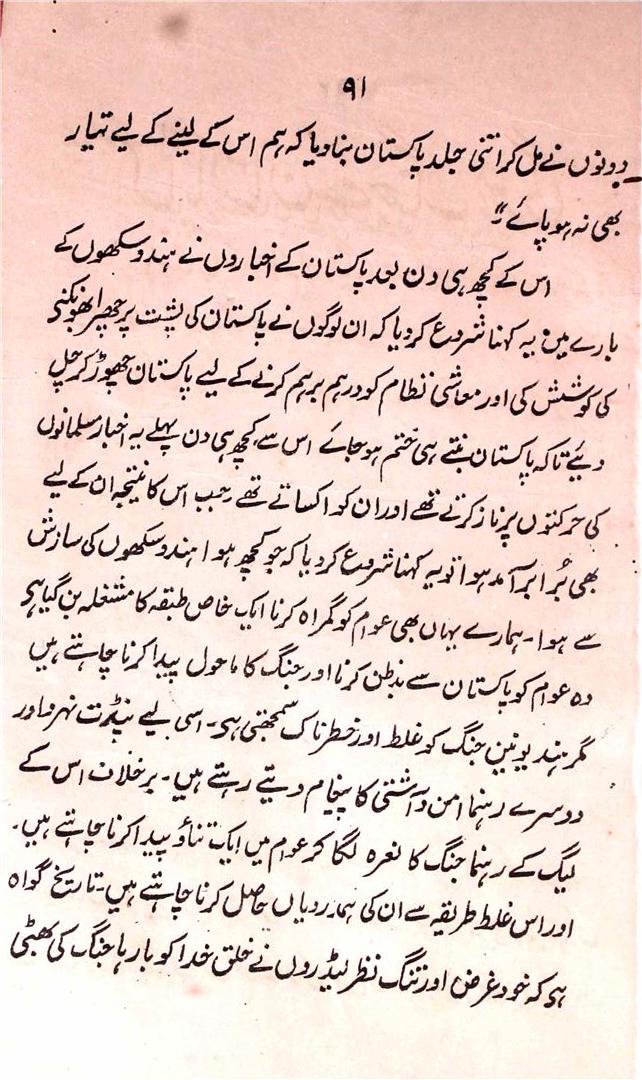 ۹۱
دونوں نے مل کر اتنی جلد پاکستان بنا دیا کہ ہم اس کے لینے کے لیے تیار
بھی نہ ہو پائے۔"
اس کے کچھ ہی دن بعد پاکستان کے اخباروں نے ہندو سکھوں کے
بارے میں یہ کہنا شروع کر دیا کہ ان لوگوں نے پاکستان کی پشت پر چھرا بھونکنے
کی کوشش کی اور معاشی نظام کو درہم برہم کرنے کے لیے پاکستان چھوڑ کر چل
دیئے تاکہ پاکستان بنتے ہی ختم ہو جائے اس سے کچھ ہی دن پہلے یہ اخبار مسلمانوں
کی حرکتوں پر ناز کرتے تھے اور ان کو اکساتے تھے جب اس کا نتیجہ ان کے لیے
بھی بُرا برآمد ہوا تو یہ کہنا شروع کر دیا کہ جو کچھ ہوا ہندو سکھوں کی سازش
سے ہوا۔ ہمارے یہاں بھی عوام کو گمراہ کرنا ایک خاص طبقہ کا مشغلہ بن گیا ہی
وہ عوام کو پاکستان سے بدظن کرنا اور جنگ کا ماحول پیدا کرنا چاہتے ہیں
مگر ہند یونین جنگ کو غلط اور خطرناک سمجھتی ہی۔ اسی لیے پنڈت نہرو اور
دوسرے رہنما امن و آشتی کا پیغام دیتے رہتے ہیں۔ برخلاف اس کے
لیگ کے رہنما جنگ کا نعرہ لگا کر عوام میں ایک تناؤ پیدا کرنا چاہتے ہیں۔
اور اس غلط طریقہ سے ان کی ہمدردیاں حاصل کرنا چاہتے ہیں۔ تاریخ گواہ
ہی کہ خود غرض اور تنگ نظر لیڈروں نے خلق خدا کو بارہا جنگ کی بھٹی